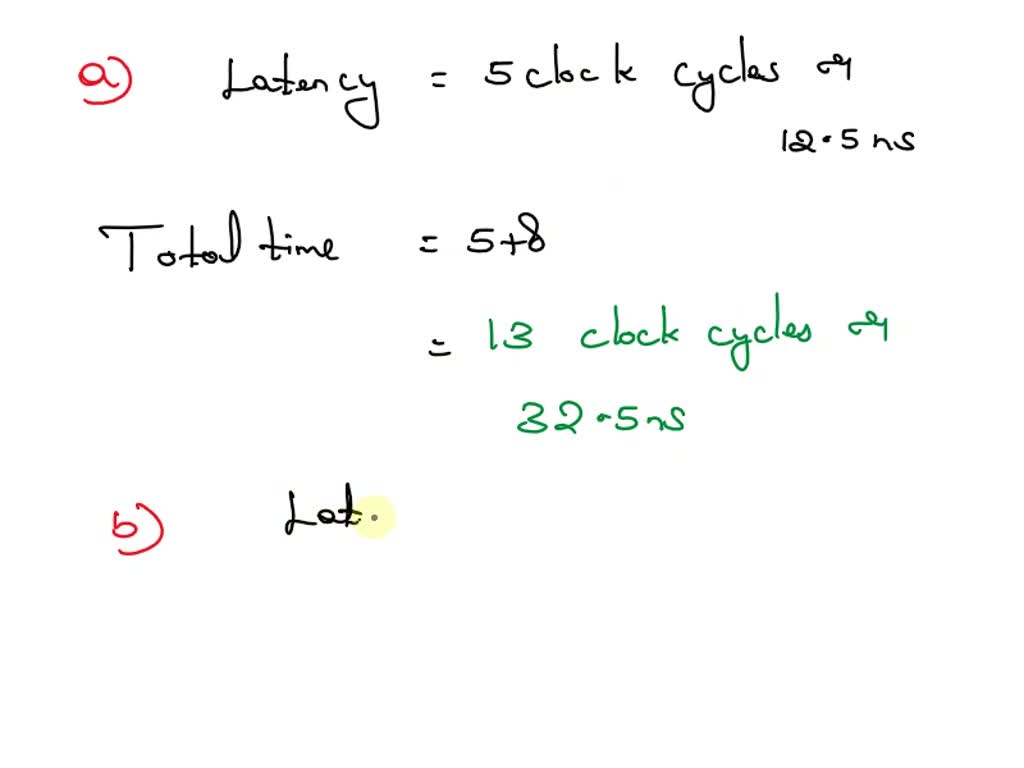 a) Latency = 5 clock cycles or
12.5 ns
Total time = 5+8
= 13 clock cycles or
32.5 ns
b) Lat